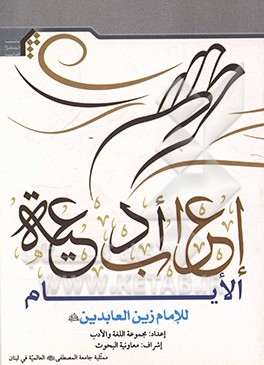 إعراب أدعية
الأيام
للإمام زين العابدين
إعداد: مجموعة اللغة والأدب
إشراف: معاونية البحوث
ممثلية جامعة المصطفى ﷺ العالمية في لبنان